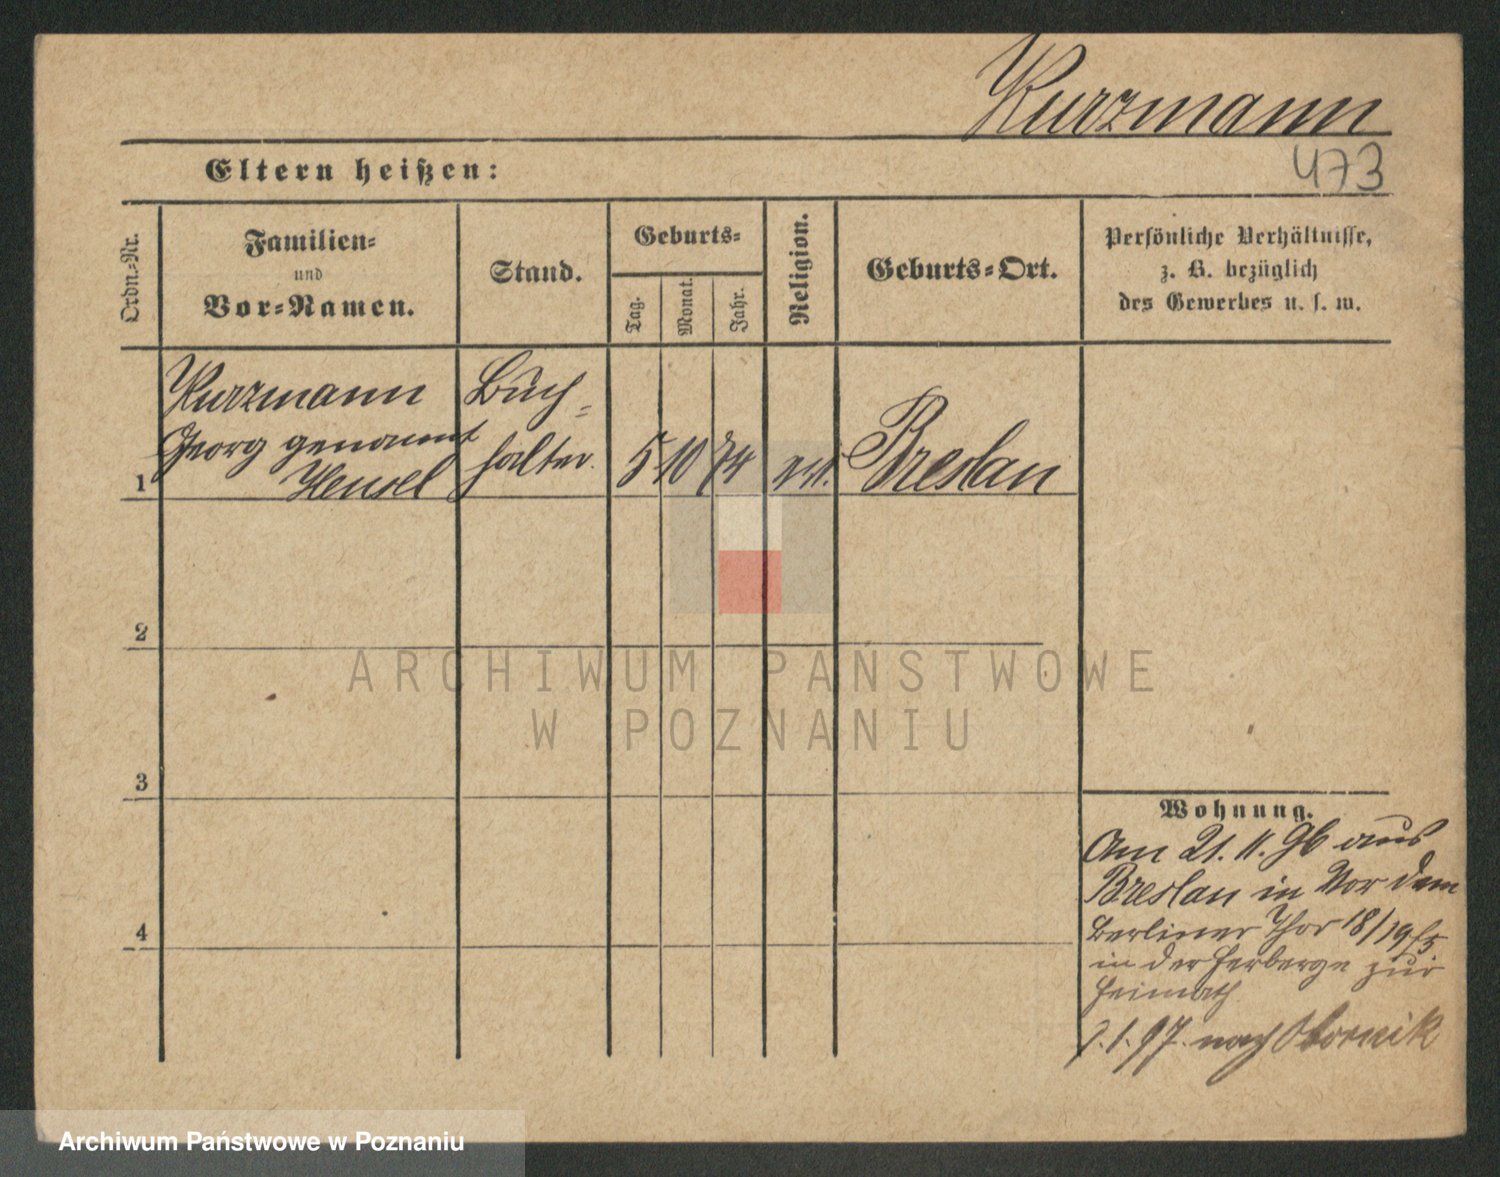 Kurzmann
473
Eltern heißen:
Ordn.-Nr.
Familien-
und
Vor-Namen.
Stand.
Geburts-
Tag.
Monat.
Jahr.
Religion.
Geburts-Ort.
Persönliche Verhältnisse,
z. B. bezüglich
des Gewerbes u. s. w.
1
Kurzmann
Georg genannt
Hensel
Buch-
halter.
5 10 74
Breslau
2
3
4
ARCHIWUM PAŃSTWOWE
W POZNANIU
Wohnung.
Am 21. 11. 96 aus
Breslau in Vor dem
Berliner Thor 18/19
in der Herberge zur
Heimath
1. 97. nach Obornik
Archiwum Państwowe w Poznaniu